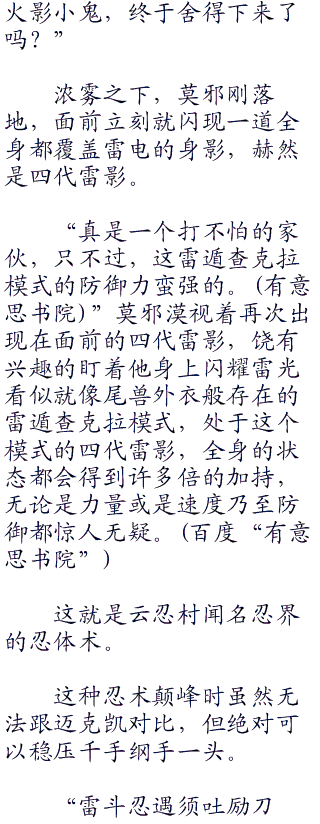 火影小鬼，终于舍得下来了
吗？”
浓雾之下，莫邪刚落
地，面前立刻就闪现一道全
身都覆盖雷电的身影，赫然
是四代雷影。
“真是一个打不怕的家
伙，只不过，这雷遁查克拉
模式的防御力蛮强的。(有意
思书院)”莫邪漠视着再次出
现在面前的四代雷影，饶有
兴趣的盯着他身上闪耀雷光
看似就像尾兽外衣般存在的
雷遁查克拉模式，处于这个
模式的四代雷影，全身的状
态都会得到许多倍的加持，
无论是力量或是速度乃至防
御都惊人无疑。(百度“有意
思书院”)
这就是云忍村闻名忍界
的忍体术。
这种忍术颠峰时虽然无
法跟迈克凯对比，但绝对可
以稳压千手纲手一头。
“雷斗忍遇须吐励刀